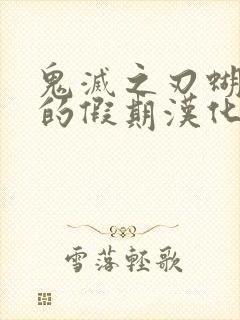 鬼滅之刃蝴
的假期漢化
雪落輕歌